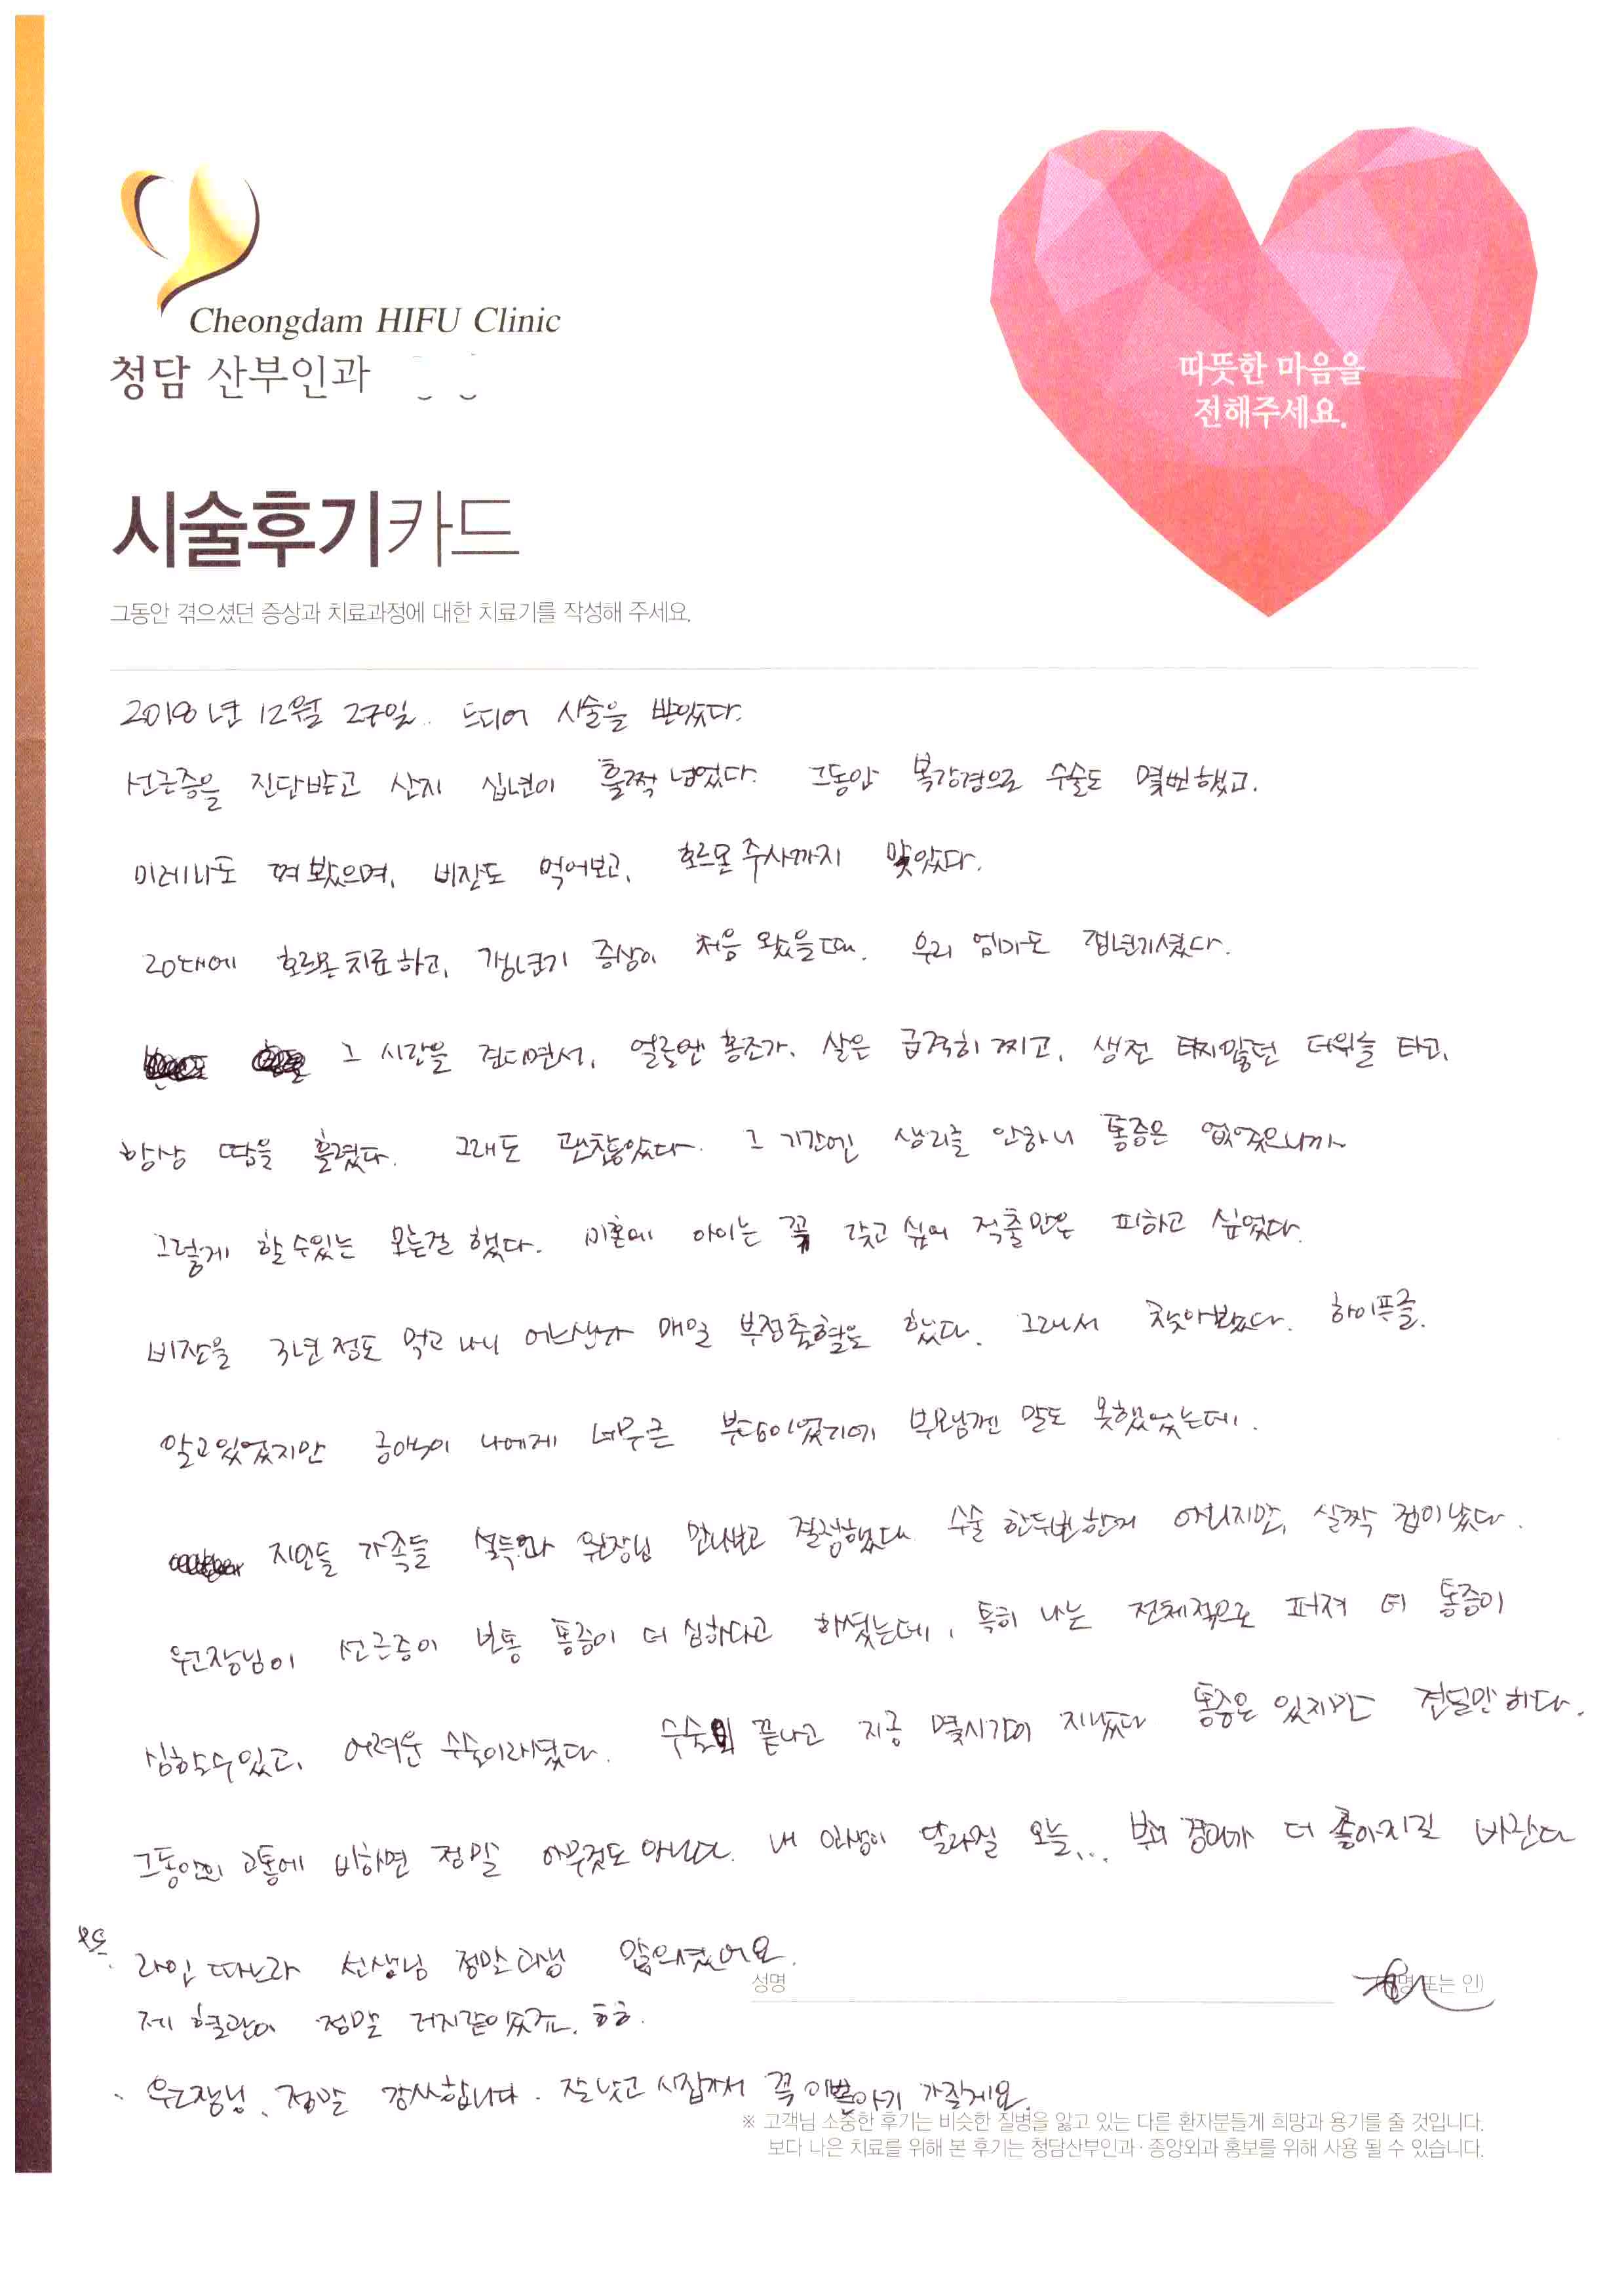 Cheongdam HIFU Clinic
청담 산부인과
따뜻한 마음을
전해주세요.
시술후기카드
그동안 겪으셨던 증상과 치료과정에 대한 치료기를 작성해 주세요.
2018년 12월 27일. 드디어 시술을 받았다.
선근증을 진단받고 산지 십년이 훌쩍 넘었다. 그동안 복강경으로 수술도 몇번 했고,
미레나도 껴 봤으며, 비잔도 먹어보고, 호르몬 주사까지 맞았다.
20대에 호르몬 치료하고, 갱년기 증상이 처음 왔을때. 우리 엄마도 갱년기셨다.
그 시간을 견디면서, 얼굴엔 홍조가, 살은 급격히 찌고, 생전 타지않던 더위를 타고,
항상 땀을 흘렸다. 그래도 괜찮았다. 그 기간엔 생리를 안하니 통증은 없었으니까
그렇게 할수있는 모든걸 했다. 미혼에 아이는 꼭 갖고 싶어 적출만은 피하고 싶었다.
비잔을 3년정도 먹고 나니 어느샌가 매일 부정출혈을 했다. 그래서 찾아봤다. 하이푸를.
알고있었지만 금액이 나에게 너무큰 부담이었기에 부모님껜 말도 못했었는데.
지인들 가족들 설득과 원장님 만나보고 결정했다. 수술 한두번한게 아니지만, 살짝 겁이났다.
원장님이 선근증이 보통 통증이 더 심하다고 하셨는데, 특히 나는 전체적으로 퍼져 더 통증이
심할수있고, 어려운 수술이라셨다. 수술이 끝나고 지금 몇시간이 지났다 통증은 있지만 견딜만 하다.
그동안의 고통에 비하면 정말 아무것도 아니다. 내 인생이 달라질 오늘... 경과가 더 좋아지길 바란다
라인 따느라 선생님 정말 고생 많으셨어요.
성명
또는 인)
제 혈관이 정말 거지같았죠. 흐흐.
원장님, 정말 감사합니다. 잘낫고 시집가서 꼭 이쁜아기 가질게요.
※ 고객님 소중한 후기는 비슷한 질병을 앓고 있는 다른 환자분들게 희망과 용기를 줄 것입니다.
보다 나은 치료를 위해 본 후기는 청담산부인과·종양외과 홍보를 위해 사용 될 수 있습니다.